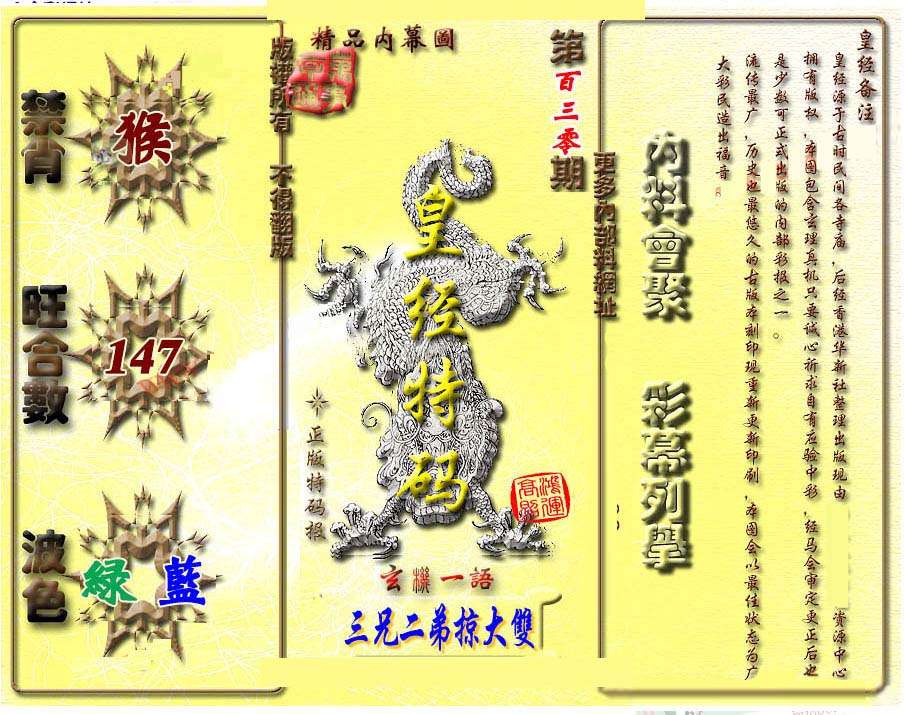 精品内幕圖
第百三零期
版權所有 不得翻版
更多內部料網址
禁肖
猴
旺合數
147
波色
綠 藍
皇经特码
正版特码报
鴻運高照
玄機一語
三兄二弟掠大雙
內料會聚 彩幕列舉
皇经备注
皇经源于古时民间各寺庙，后经香港华新社整理出版现由 资源中心
拥有版权，本图包含玄理真机只要诚心祈求自有应验中彩，经马会审定更正后也
是少数可正式出版的内部彩报之一。
流传最广，历史也最悠久的古版本刻印现重新更新印刷，本图会以最佳状态为广
大彩民造出福音